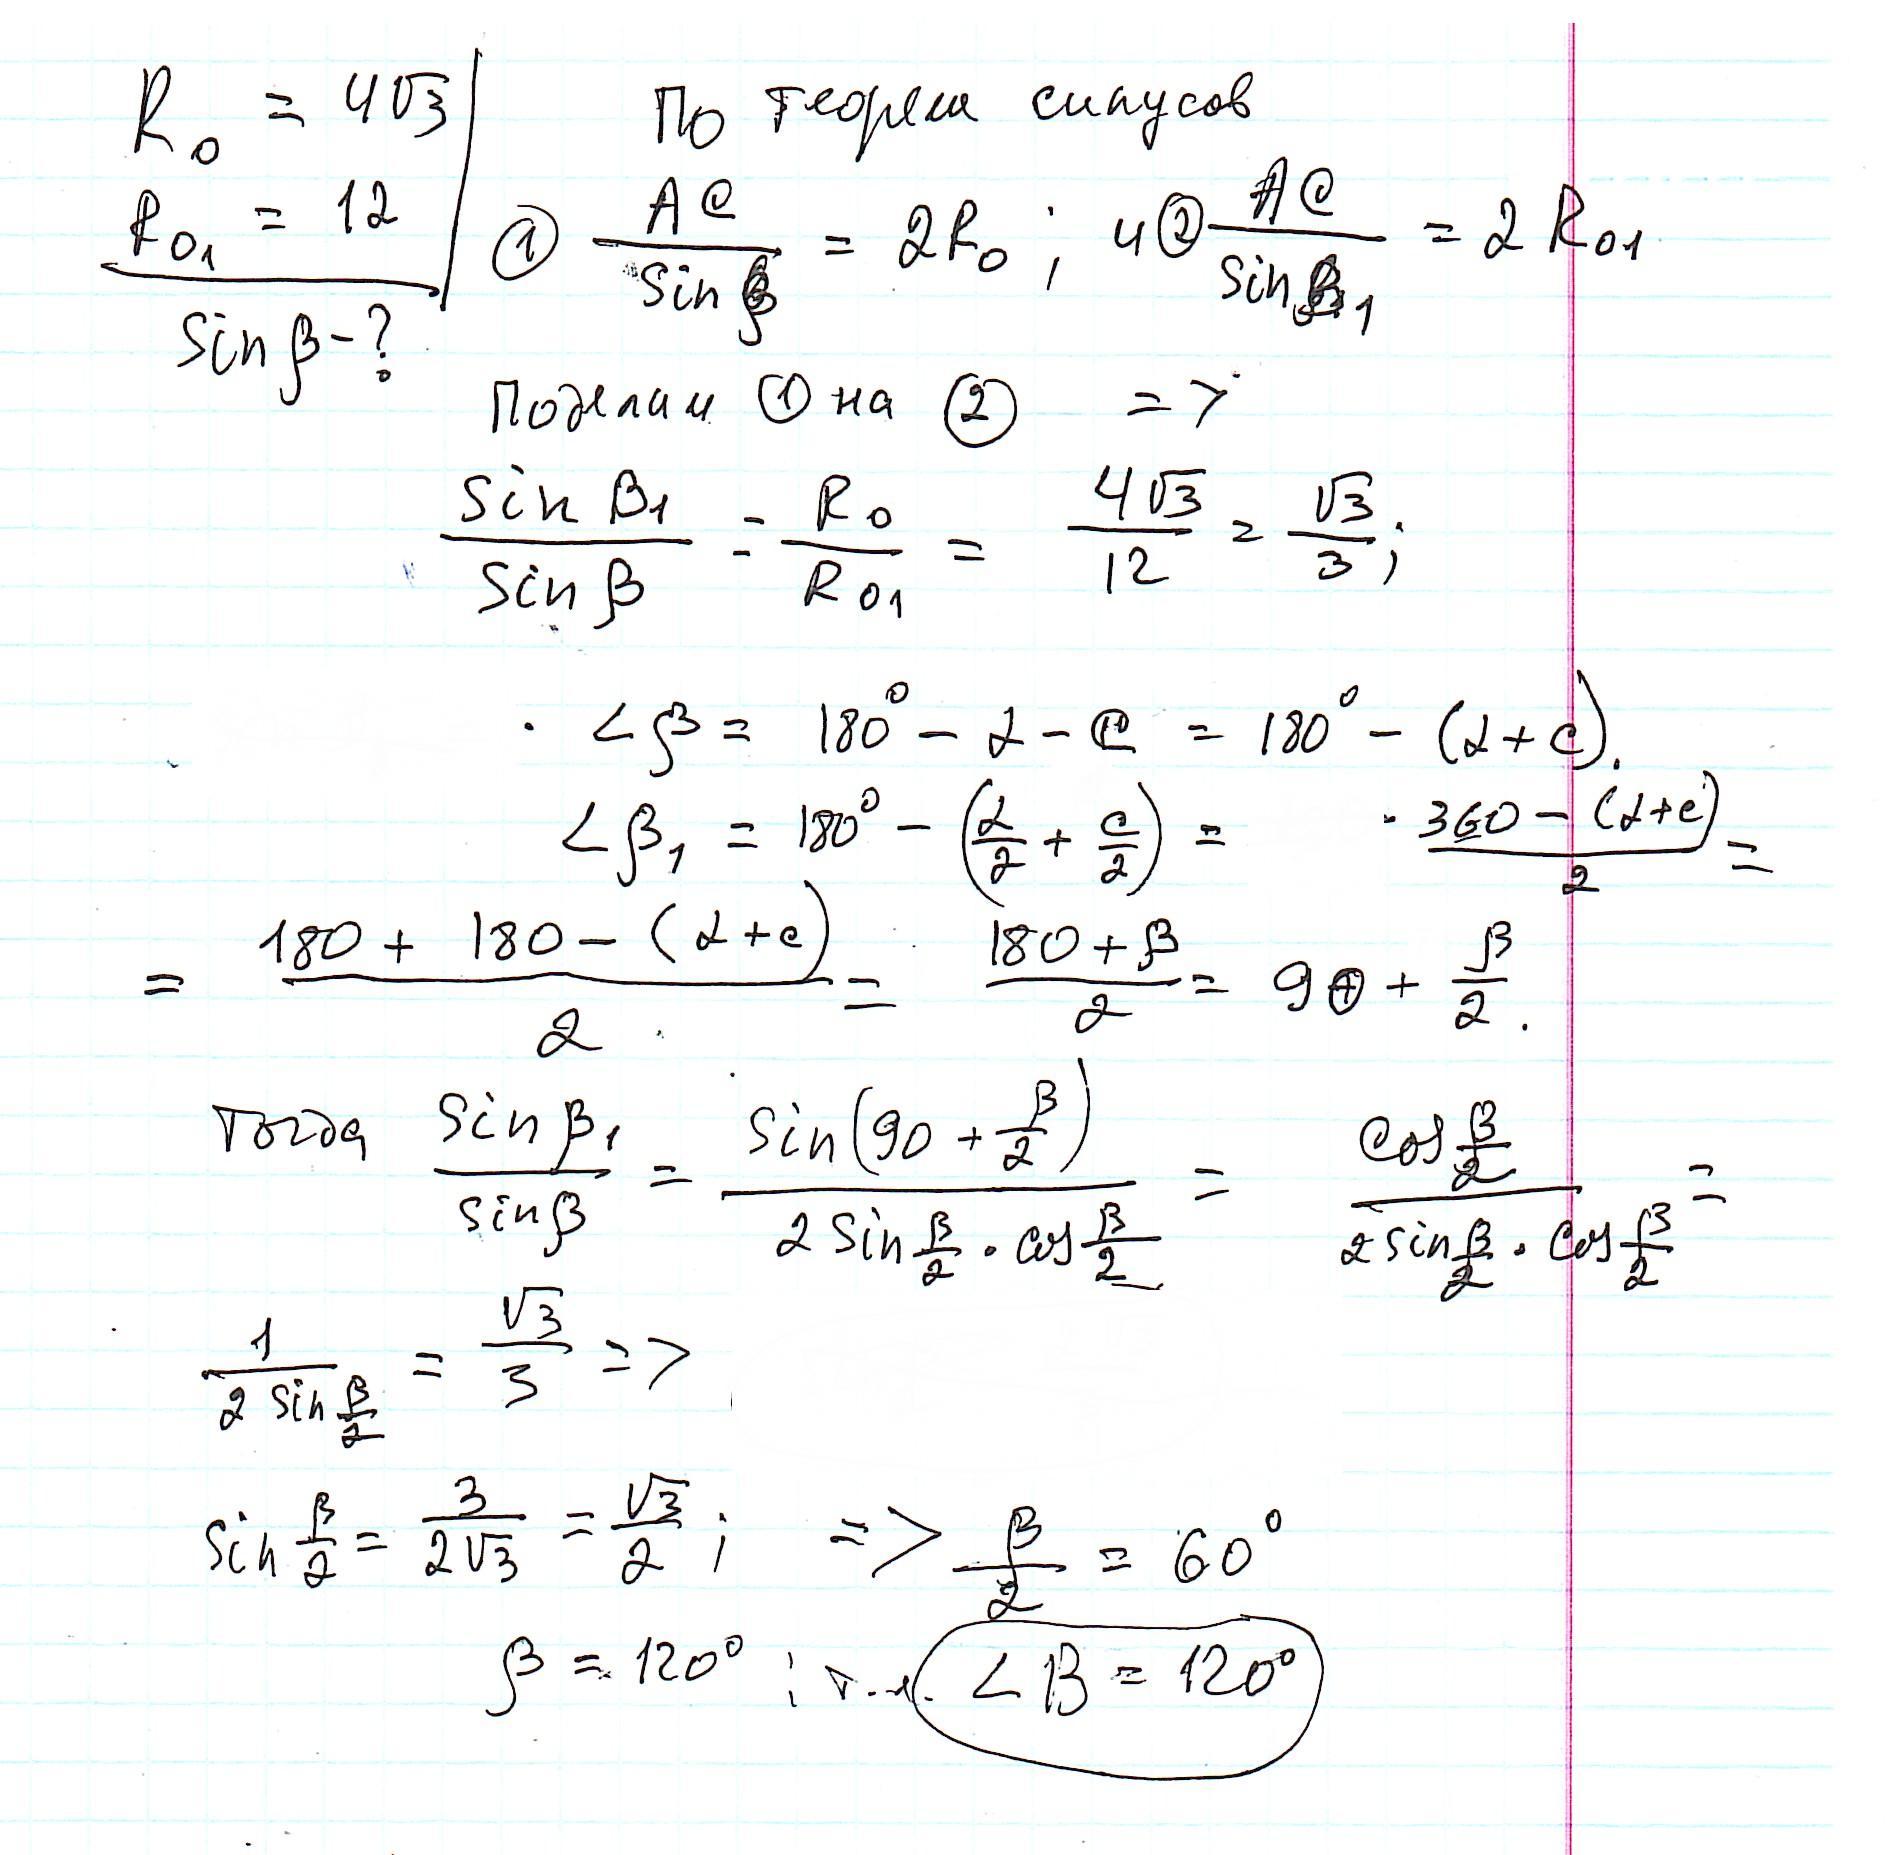 R₀ = 4√3
R₀₁ = 12
Sin β - ?
По теорем синусов
① AC / Sin β = 2R₀ ; и ② AC / Sin β₁ = 2 R₀₁
Поделим ① на ② =>
Sin β₁ / Sin β = R₀ / R₀₁ = 4√3 / 12 = √3 / 3 ;
∠β = 180° - α - C = 180° - (α + C).
∠β₁ = 180° - (α/2 + C/2) = 360 - (α + C) / 2 =
= 180 + 180 - (α + C) / 2 = 180 + β / 2 = 90 + β/2 .
Тогда Sin β₁ / Sin β = Sin(90 + β/2) / 2 Sin β/2 · cos β/2 = cos β/2 / 2 sin β/2 · cos β/2 =
1 / 2 Sin β/2 = √3 / 3 =>
Sin β/2 = 3 / 2√3 = √3 / 2 ; => β/2 = 60°
β = 120° ; ∠B = 120°